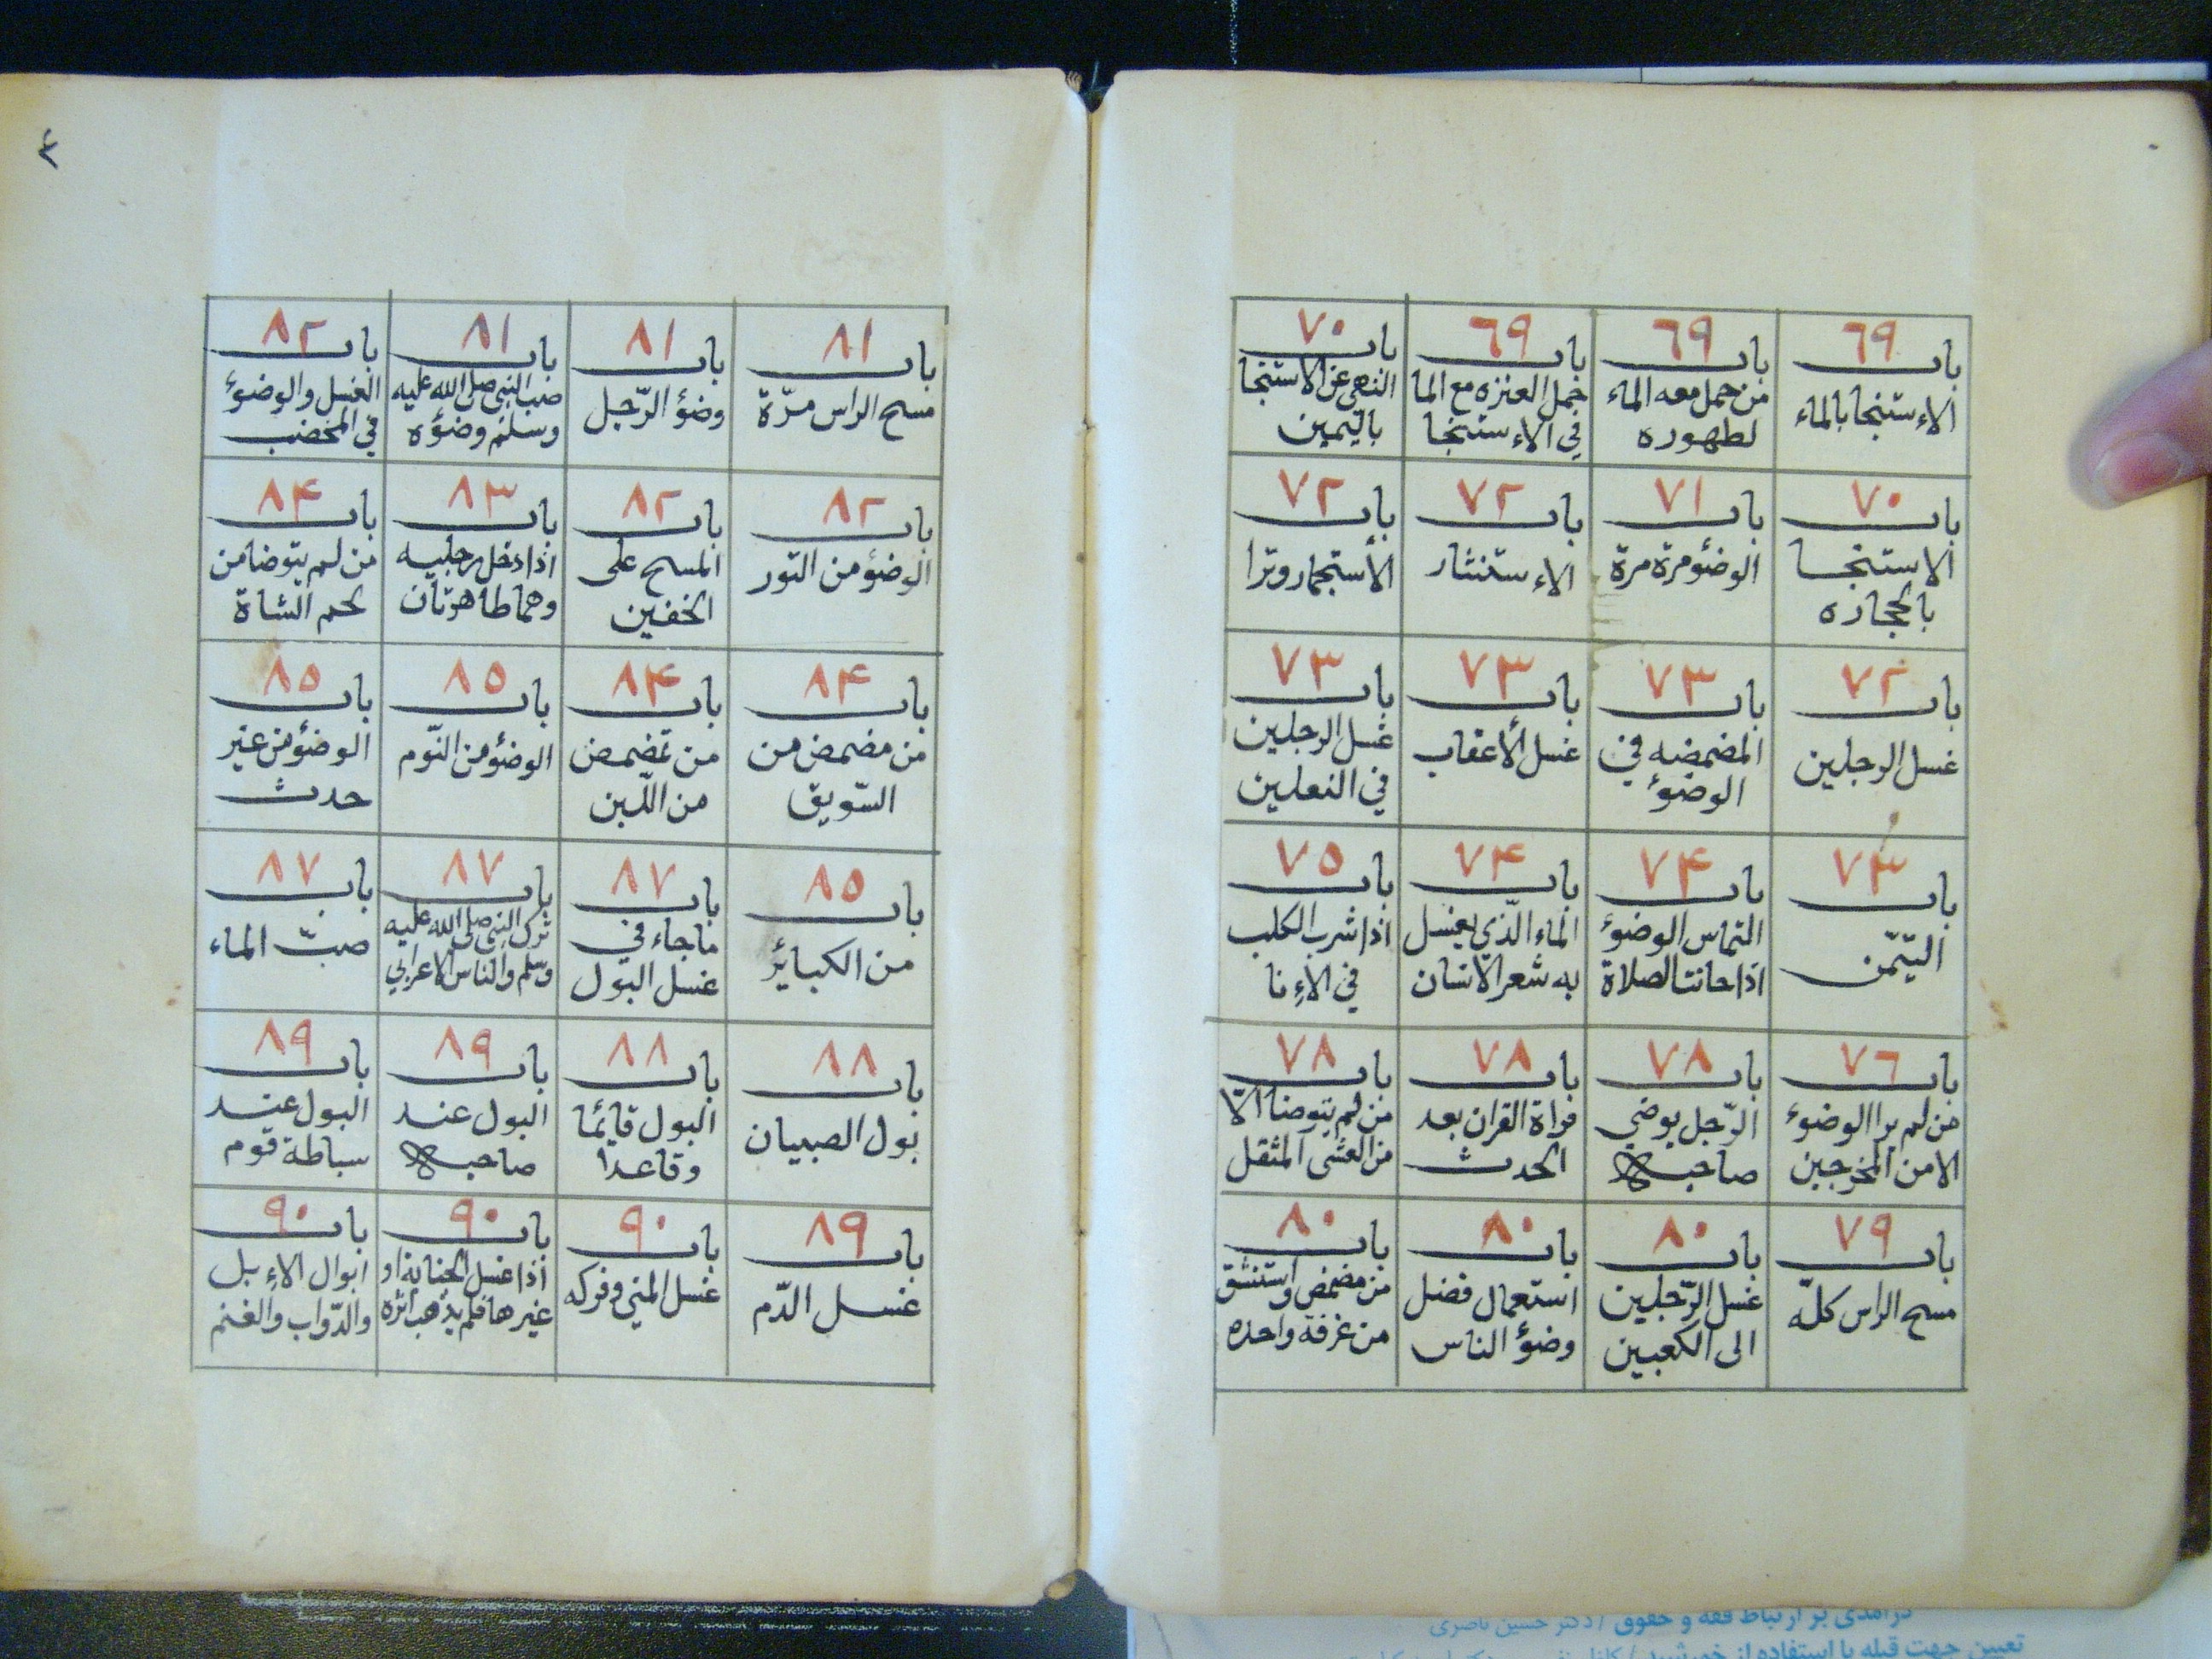 ٦٩
باب
الاستنجا بالماء
٦٩
باب
من حمل معه الماء
لطهوره
٦٩
باب
حمل العنزه مع الما
في الاستنجا
٧٠
باب
النهى عن الاستنجا
باليمين
٧٠
باب
الاستنجا
بالحجاره
٧١
باب
الوضؤ مرة مرة
٧٢
باب
الاستنثار
٧٢
باب
الأستجمار وترا
٧٢
باب
غسل الرجلين
٧٣
باب
المضمضه في
الوضوء
٧٣
باب
غسل الأعقاب
٧٣
باب
غسل الرجلين
في النعلين
٧٣
باب
التيّمن
٧۴
باب
التماس الوضوء
اذا حانت الصلاة
٧۴
باب
الماء الّذي يغسل
به شعر الانسان
٧٥
باب
اذا شرب الكلب
في الاءِنا
٧٦
باب
من لم ير االوضوء
الا من المخرجين
٧٨
باب
الرّجل يوضي
صاحبه
٧٨
باب
قراة القران بعد
الحدث
٧٨
باب
من لم يتوضا الّا
من الغشى المثقل
٧٩
باب
مسح الراس كلّه
٨٠
باب
غسل الرّجلين
الى الكعبين
٨٠
باب
استعمال فضل
وضؤ الناس
٨٠
باب
من مضمض واستنشق
من غرفة واحده
٤
٨١
باب
مسح الراس مرّة
٨١
باب
وضؤ الرّجل
٨١
باب
صب النبي صلى الله عليه
وسلم وضؤه
٨٢
باب
الغسل والوضوء
في المخضب
٨٢
باب
الوضؤ من التور
٨٢
باب
المسح على
الخفين
٨٣
باب
اذا دخل رجليه
وهما طاهرتان
٨۴
باب
من لم يتوضا من
لحم الشاة
٨۴
باب
من مضمض من
السّويق
٨۴
باب
من تمضمض
من اللّبن
٨٥
باب
الوضؤ من النّوم
٨٥
باب
الوضؤ من غير
حدث
٨٥
باب
من الكبائر
٨٧
باب
ما جاء في
غسل البول
٨٧
باب
ترك النبي صلى الله عليه
وسلم والناس الاعرابي
٨٧
باب
صبّ الماء
٨٨
باب
بول الصبيان
٨٨
باب
البول قائما
وقاعدا
٨٩
باب
البول عند
صاحبه
٨٩
باب
البول عند
سباطة قوم
٨٩
باب
غسل الدّم
٩٠
باب
غسل المني وفركه
٩٠
باب
اذا غسل الجنابة او
غيرها فلم يذهب اثره
٩٠
باب
ابوال الاءِبل
والدّواب والغنم
درآمدی بر ارتباط فقه و حقوق / دکتر حسین ناصری
تعیین جهت قبله با استفاده از خورشید /